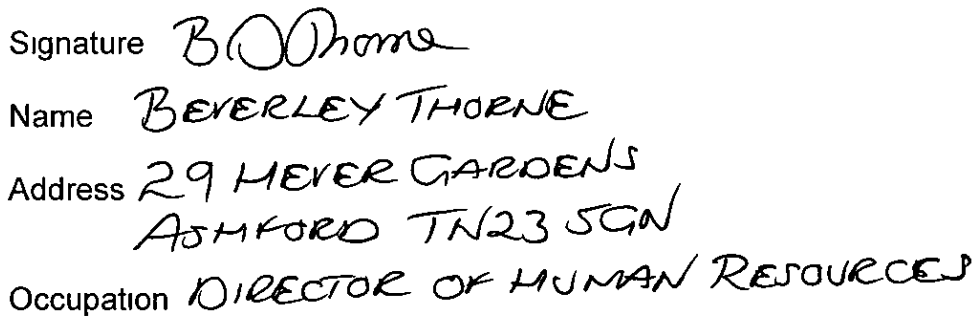 Signature B D Thorne
Name BEVERLEY THORNE
Address 29 HEVER GARDENS
ASHFORD TN23 5GN
Occupation DIRECTOR OF HUMAN RESOURCES